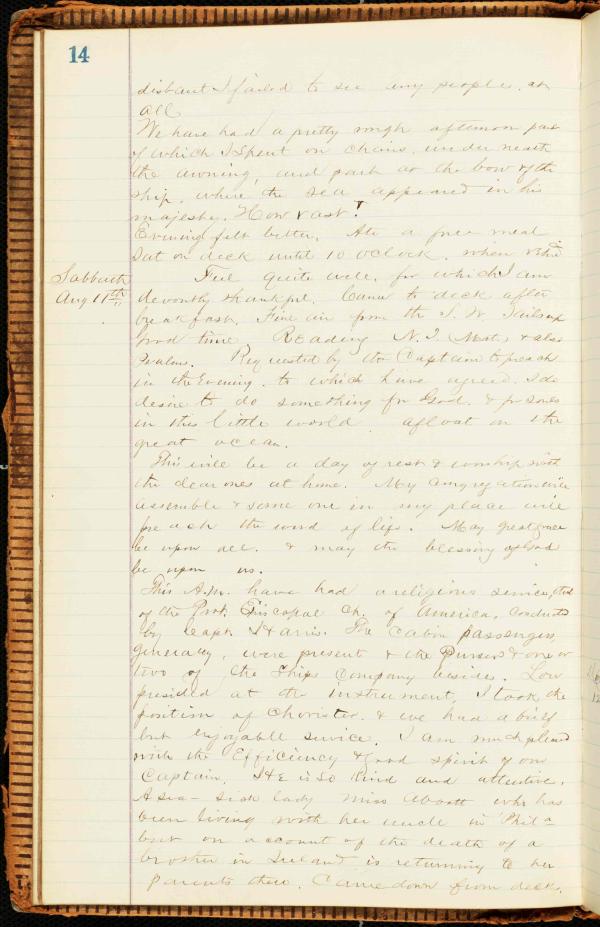 14
distant I failed to see any people, at
all
We have had a pretty rough afternoon part
of which I spent on chairs, underneath
the awning, and part at the bow of the
ship, where the sea appeared in his
majesty. How vast!
Evening felt better. Ate a free meal
Sat on deck until 10 o'clock, when
Sabbath
Aug 11th
Feel quite well, for which I am
devoutly thankful. Came to deck after
breakfast. Fine air from the S. W. Sailing
good time. Reading N.T. (Matt.) & also
Psalms. Requested by the Captain to preach
in the Evening, to which have agreed. I do
desire to do something for God, & for souls
in this little world afloat on the
great ocean.
This will be a day of rest & worship with
the dear ones at home. My congregation will
assemble & some one in my place will
preach the word of life. May great grace
be upon all, & may the blessing of God
be upon us.
This A.M. have had a religious service, that
of the Prot. Episcopal Ch. of America, conducted
by Capt. Harris. The cabin passengers,
generally, were present & the Purser & one or
two of the Ships Company besides. Lou
presided at the instrument, I took the
position of chorister, & we had a brief
but enjoyable service. I am much pleased
with the Efficiency & good spirit of our
Captain. He is so kind and attentive.
A sea-sick lady Miss Abbott who has
been living with her uncle in Phila
but on account of the death of a
brother in Ireland is returning to her
parents there. Came down from deck,